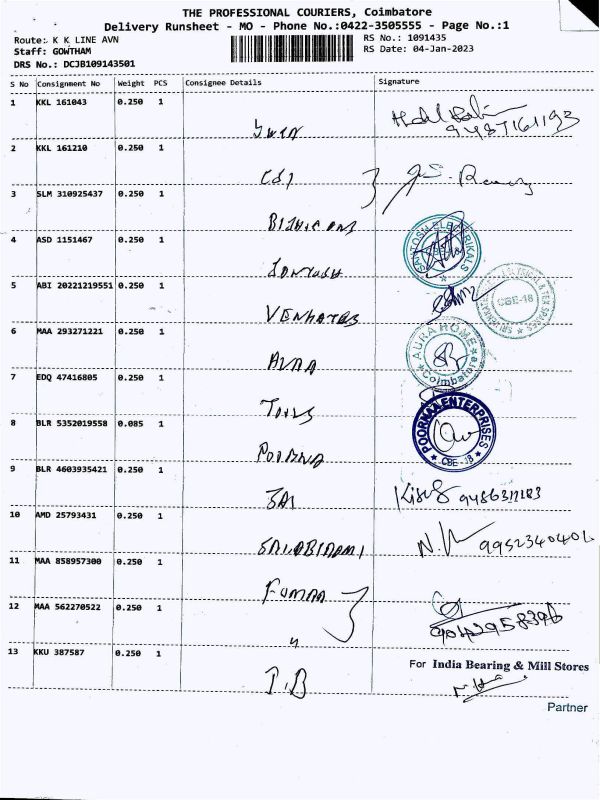 THE PROFESSIONAL COURIERS, Coimbatore
Delivery Runsheet - MO - Phone No.:0422-3505555 - Page No.:1
Route: K K LINE AVN
RS No.: 1091435
Staff: GOWTHAM
RS Date: 04-Jan-2023
DRS No.: DCJB109143501
S No Consignment No Weight PCS Consignee Details Signature
1 KKL 161043 0.250 1
9487161193
2 KKL 161210 0.250 1 CSI
3 SLM 310925437 0.250 1
4 ASD 1151467 0.250 1 SANTOSH
SANTOSH ELECTRIKALS
5 ABI 20221219551 0.250 1 VENKATES
CBE-18
6 MAA 293271221 0.250 1 AURA
AURA HOME
Coimbatore
7 EDQ 47416805 0.250 1 TOOLS
8 BLR 5352019558 0.085 1 POORNA
POORNA ENTERPRISES
CBE-18
9 BLR 4603935421 0.250 1 SAI
10 AMD 25793431 0.250 1 SAI ABIRAMI
9952340401
11 MAA 858957300 0.250 1
12 MAA 562270522 0.250 1 "
9042958396
13 KKU 387587 0.250 1 I.B
For India Bearing & Mill Stores
Partner